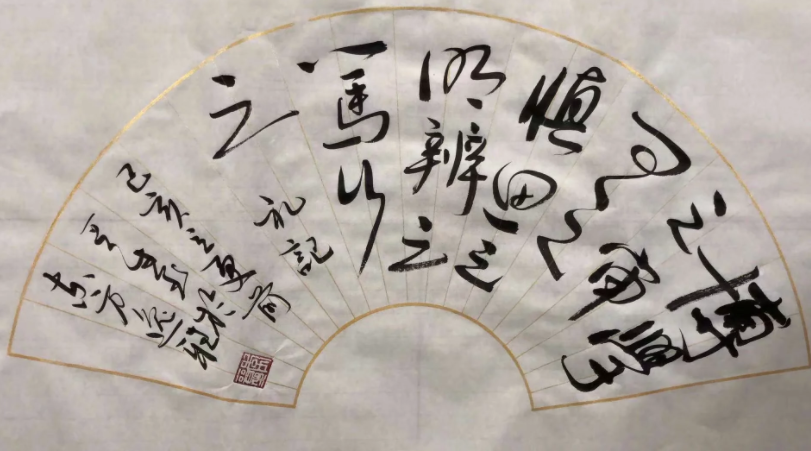 博學
之審
問之
慎思之
明辨之
篤行
之
礼記
己亥之夏